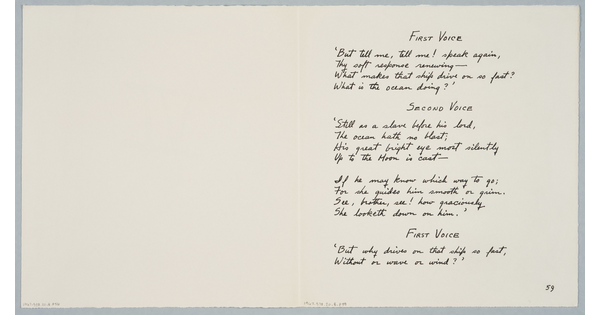 FIRST VOICE
'But tell me, tell me! speak again,
Thy soft response renewing—
What makes that ship drive on so fast?
What is the ocean doing?'
SECOND VOICE
'Still as a slave before his lord,
The ocean hath no blast;
His great bright eye most silently
Up to the Moon is cast—
If he may know which way to go;
For she guides him smooth or grim.
See, brother, see! how graciously
She looketh down on him.'
FIRST VOICE
'But why drives on that ship so fast,
Without or wave or wind?'
59